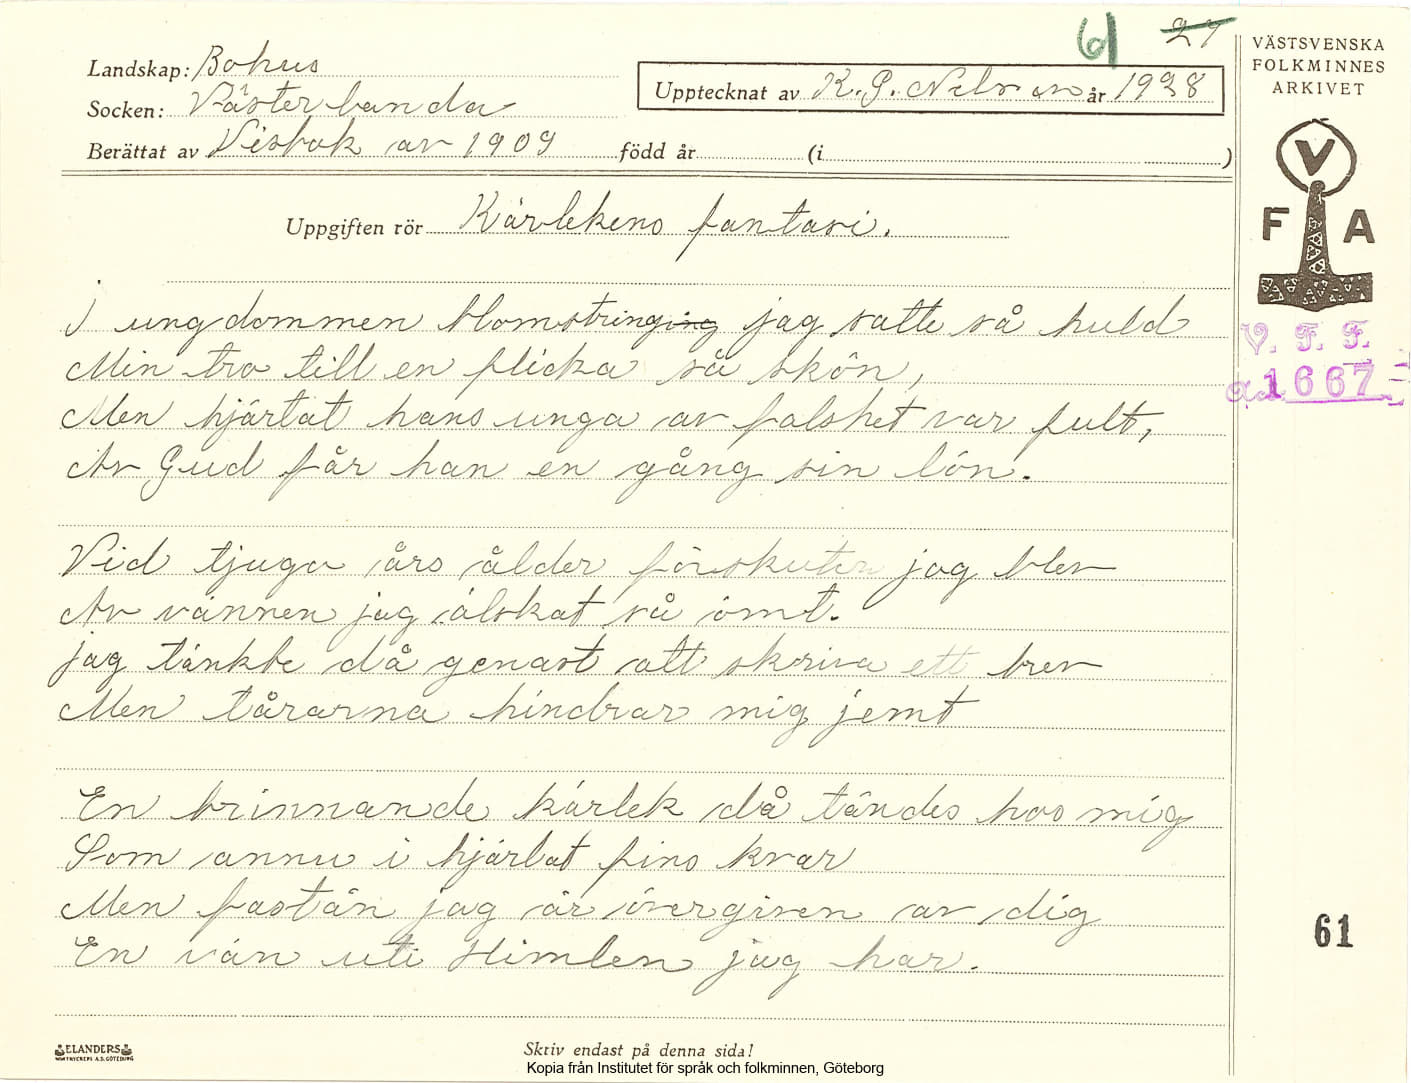 61 27
Landskap: Bohus
Socken: Västerlanda
Upptecknat av K. P. Nelson år 1928
Berättat av Visbok av 1909 född år (i )
Uppgiften rör Kärlekens fantasi.
I ungdommen blomstringing jag satte så huld
Min tro till en flicka så skön,
Men hjärtat hans unga av falshet var fult,
Av Gud får han en gång sin lön.
Vid tjugo års ålder förskuten jag blev
Av vännen jag älskat så ömt.
jag tänkte då genast att skriva ett brev
Men tårarna hindrar mig jemt
En brinnande kärlek då tändes hos mig
Som annu i hjärtat fins kvar
Men fastän jag är övergiven av dig
En vän uti Himlen jag har.
ELANDERS
BOKTRYCKERI A.B. GÖTEBORG
Skriv endast på denna sida!
Kopia från Institutet för språk och folkminnen, Göteborg
VÄSTSVENSKA
FOLKMINNES
ARKIVET
V
F A
V. F. F.
1667
61